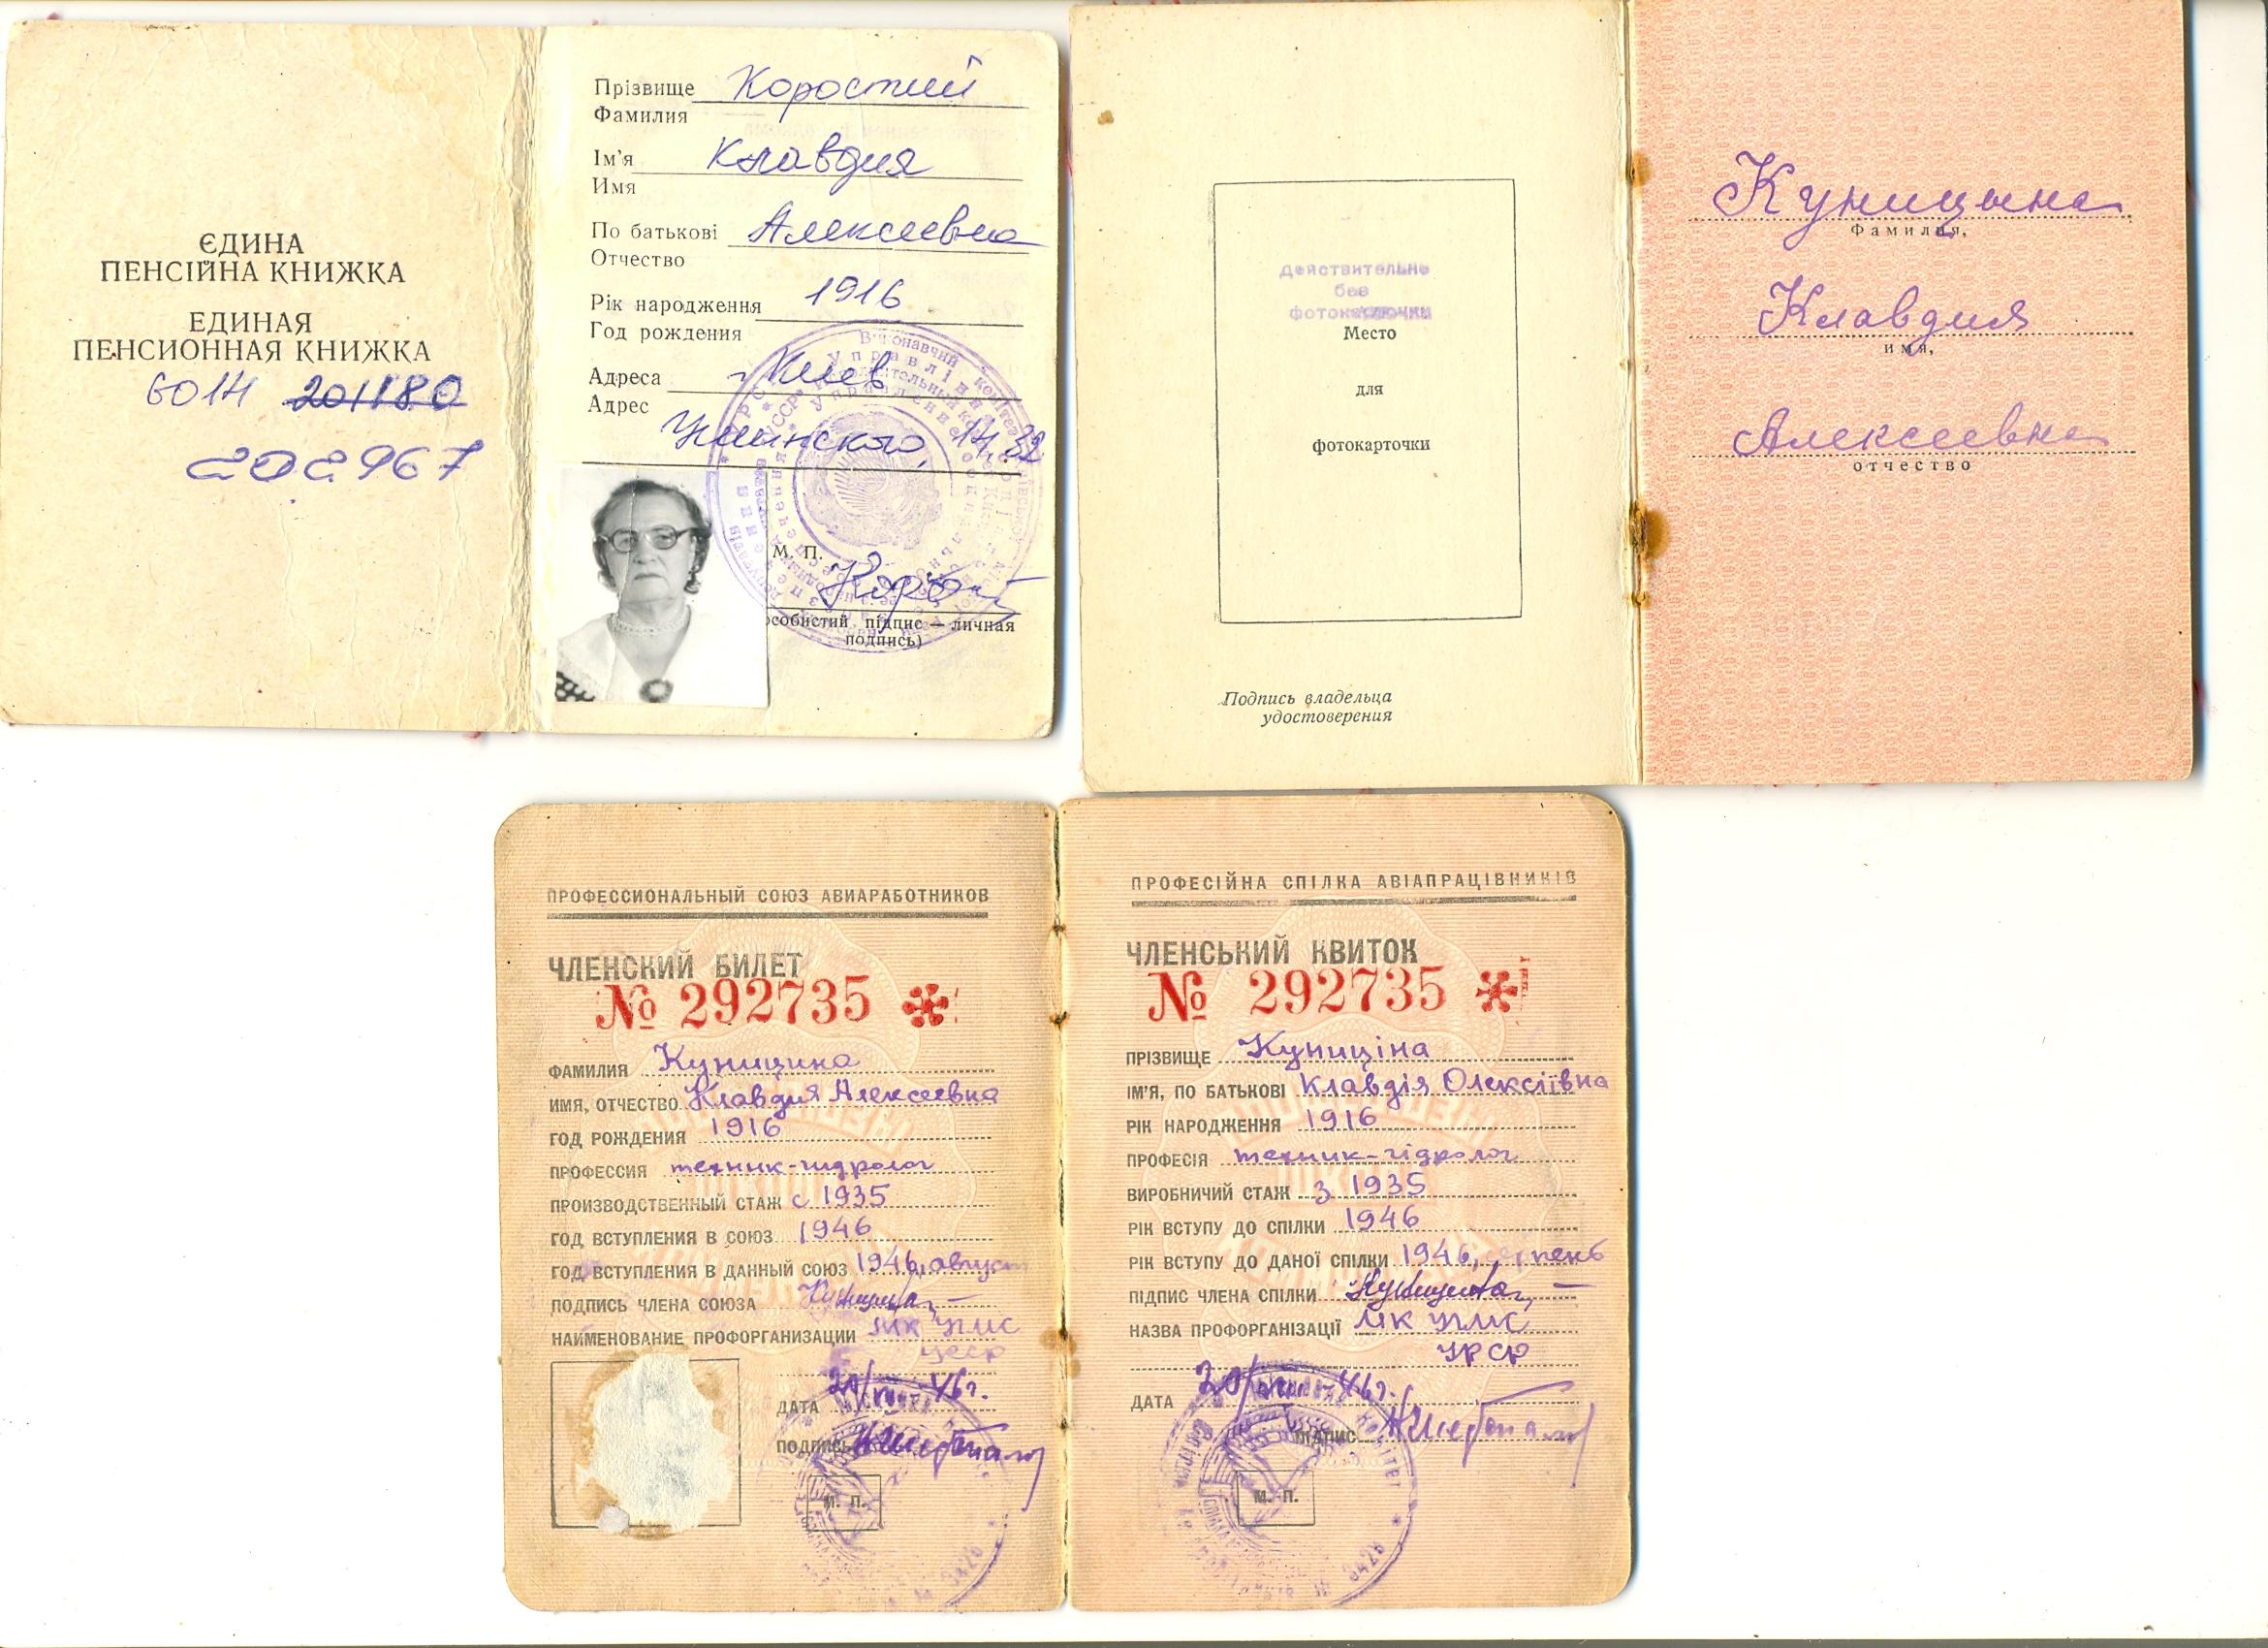 ЄДИНА
ПЕНСІЙНА КНИЖКА
ЕДИНАЯ
ПЕНСИОННАЯ КНИЖКА
6014 201180
202967
Прізвище Коростий
Фамилия
Ім'я Клавдия
Имя
По батькові Алексеевна
Отчество
Рік народження 1916
Год рождения
Адреса г. Киев
Адрес
Ушинского, 14, 32
М. П.
особистий підпис — личная
подпись)
действительно
без
фотокарточки
Место
для
фотокарточки
Подпись владельца
удостоверения
Куницына
Фамилия,
Клавдия
имя,
Алексеевна
отчество
ПРОФЕССИОНАЛЬНЫЙ СОЮЗ АВИАРАБОТНИКОВ
ЧЛЕНСКИЙ БИЛЕТ
№ 292735 *
ФАМИЛИЯ Куницина
ИМЯ, ОТЧЕСТВО Клавдия Алексеевна
ГОД РОЖДЕНИЯ 1916
ПРОФЕССИЯ техник-гидролог
ПРОИЗВОДСТВЕННЫЙ СТАЖ с 1935
ГОД ВСТУПЛЕНИЯ В СОЮЗ 1946
ГОД ВСТУПЛЕНИЯ В ДАННЫЙ СОЮЗ 1946, август
ПОДПИСЬ ЧЛЕНА СОЮЗА
НАИМЕНОВАНИЕ ПРОФОРГАНИЗАЦИИ МК УГМС
УССР
ДАТА
ПОДПИСЬ
М. П.
ПРОФЕСІЙНА СПІЛКА АВІАПРАЦІВНИКІВ
ЧЛЕНСЬКИЙ КВИТОК
№ 292735 *
ПРІЗВИЩЕ Куниціна
ІМ'Я, ПО БАТЬКОВІ Клавдія Олексіївна
РІК НАРОДЖЕННЯ 1916
ПРОФЕСІЯ техник-гідролог
ВИРОБНИЧИЙ СТАЖ з 1935
РІК ВСТУПУ ДО СПІЛКИ 1946
РІК ВСТУПУ ДО ДАНОЇ СПІЛКИ 1946, серпень
ПІДПИС ЧЛЕНА СПІЛКИ
НАЗВА ПРОФОРГАНІЗАЦІЇ МК УГМС
УРСР
ДАТА
ПІДПИС
М. П.